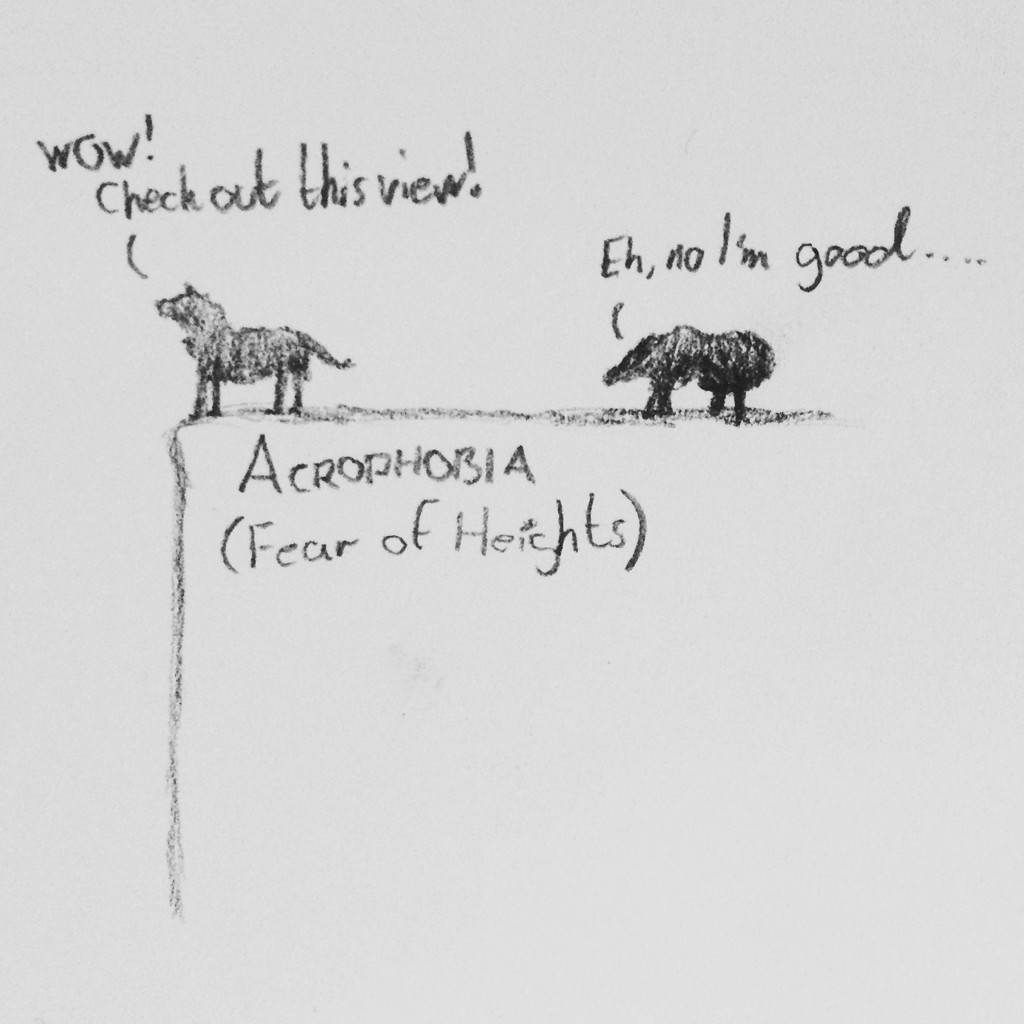 WOW!
Check out this view!
Eh, no I'm good.....
ACROPHOBIA
(Fear of Heights)